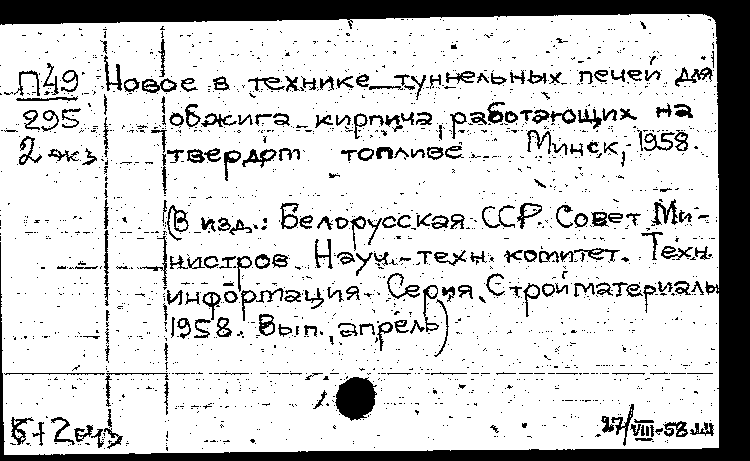 П49 Новое в технике туннельных печей для
295 обжига кирпича, работающих на
2 экз твердом топливе. Минск, 1958.
(В изд.: Белорусская ССР. Совет Ми-
нистров. Науч.-техн. комитет. Техн.
информация. Серия. Стройматериалы
1958. Вып., апрель)
27/VIII-58